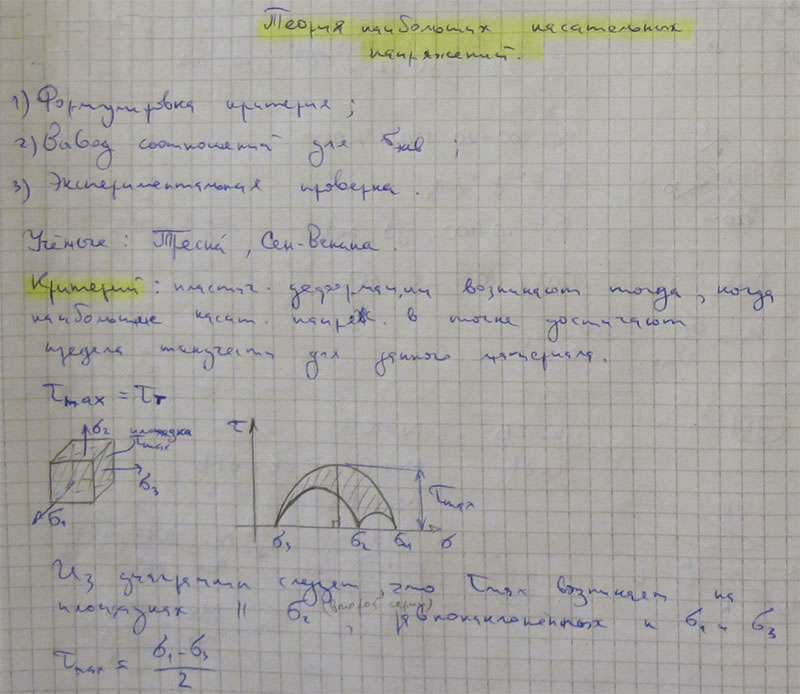 Теория наибольших касательных
напряжений.
1) Формулировка критерия;
2) Вывод соотношений для σэкв;
3) Экспериментальная проверка.
Учёные: Треска, Сен-Венана.
Критерий: пластич. деформации возникают тогда, когда
наибольшие касат. напряж. в точке достигают
предела текучести для данного материала.
τmax = τт
σ2
площадка
τmax
σ3
σ1
τ
τmax
σ3 σ2 σ1 σ
Из диаграммы следует, что τmax возникает на
площадках || σ2 (вторая серия), равнонаклоненных к σ1 и σ3
τmax = (σ1 - σ3) / 2